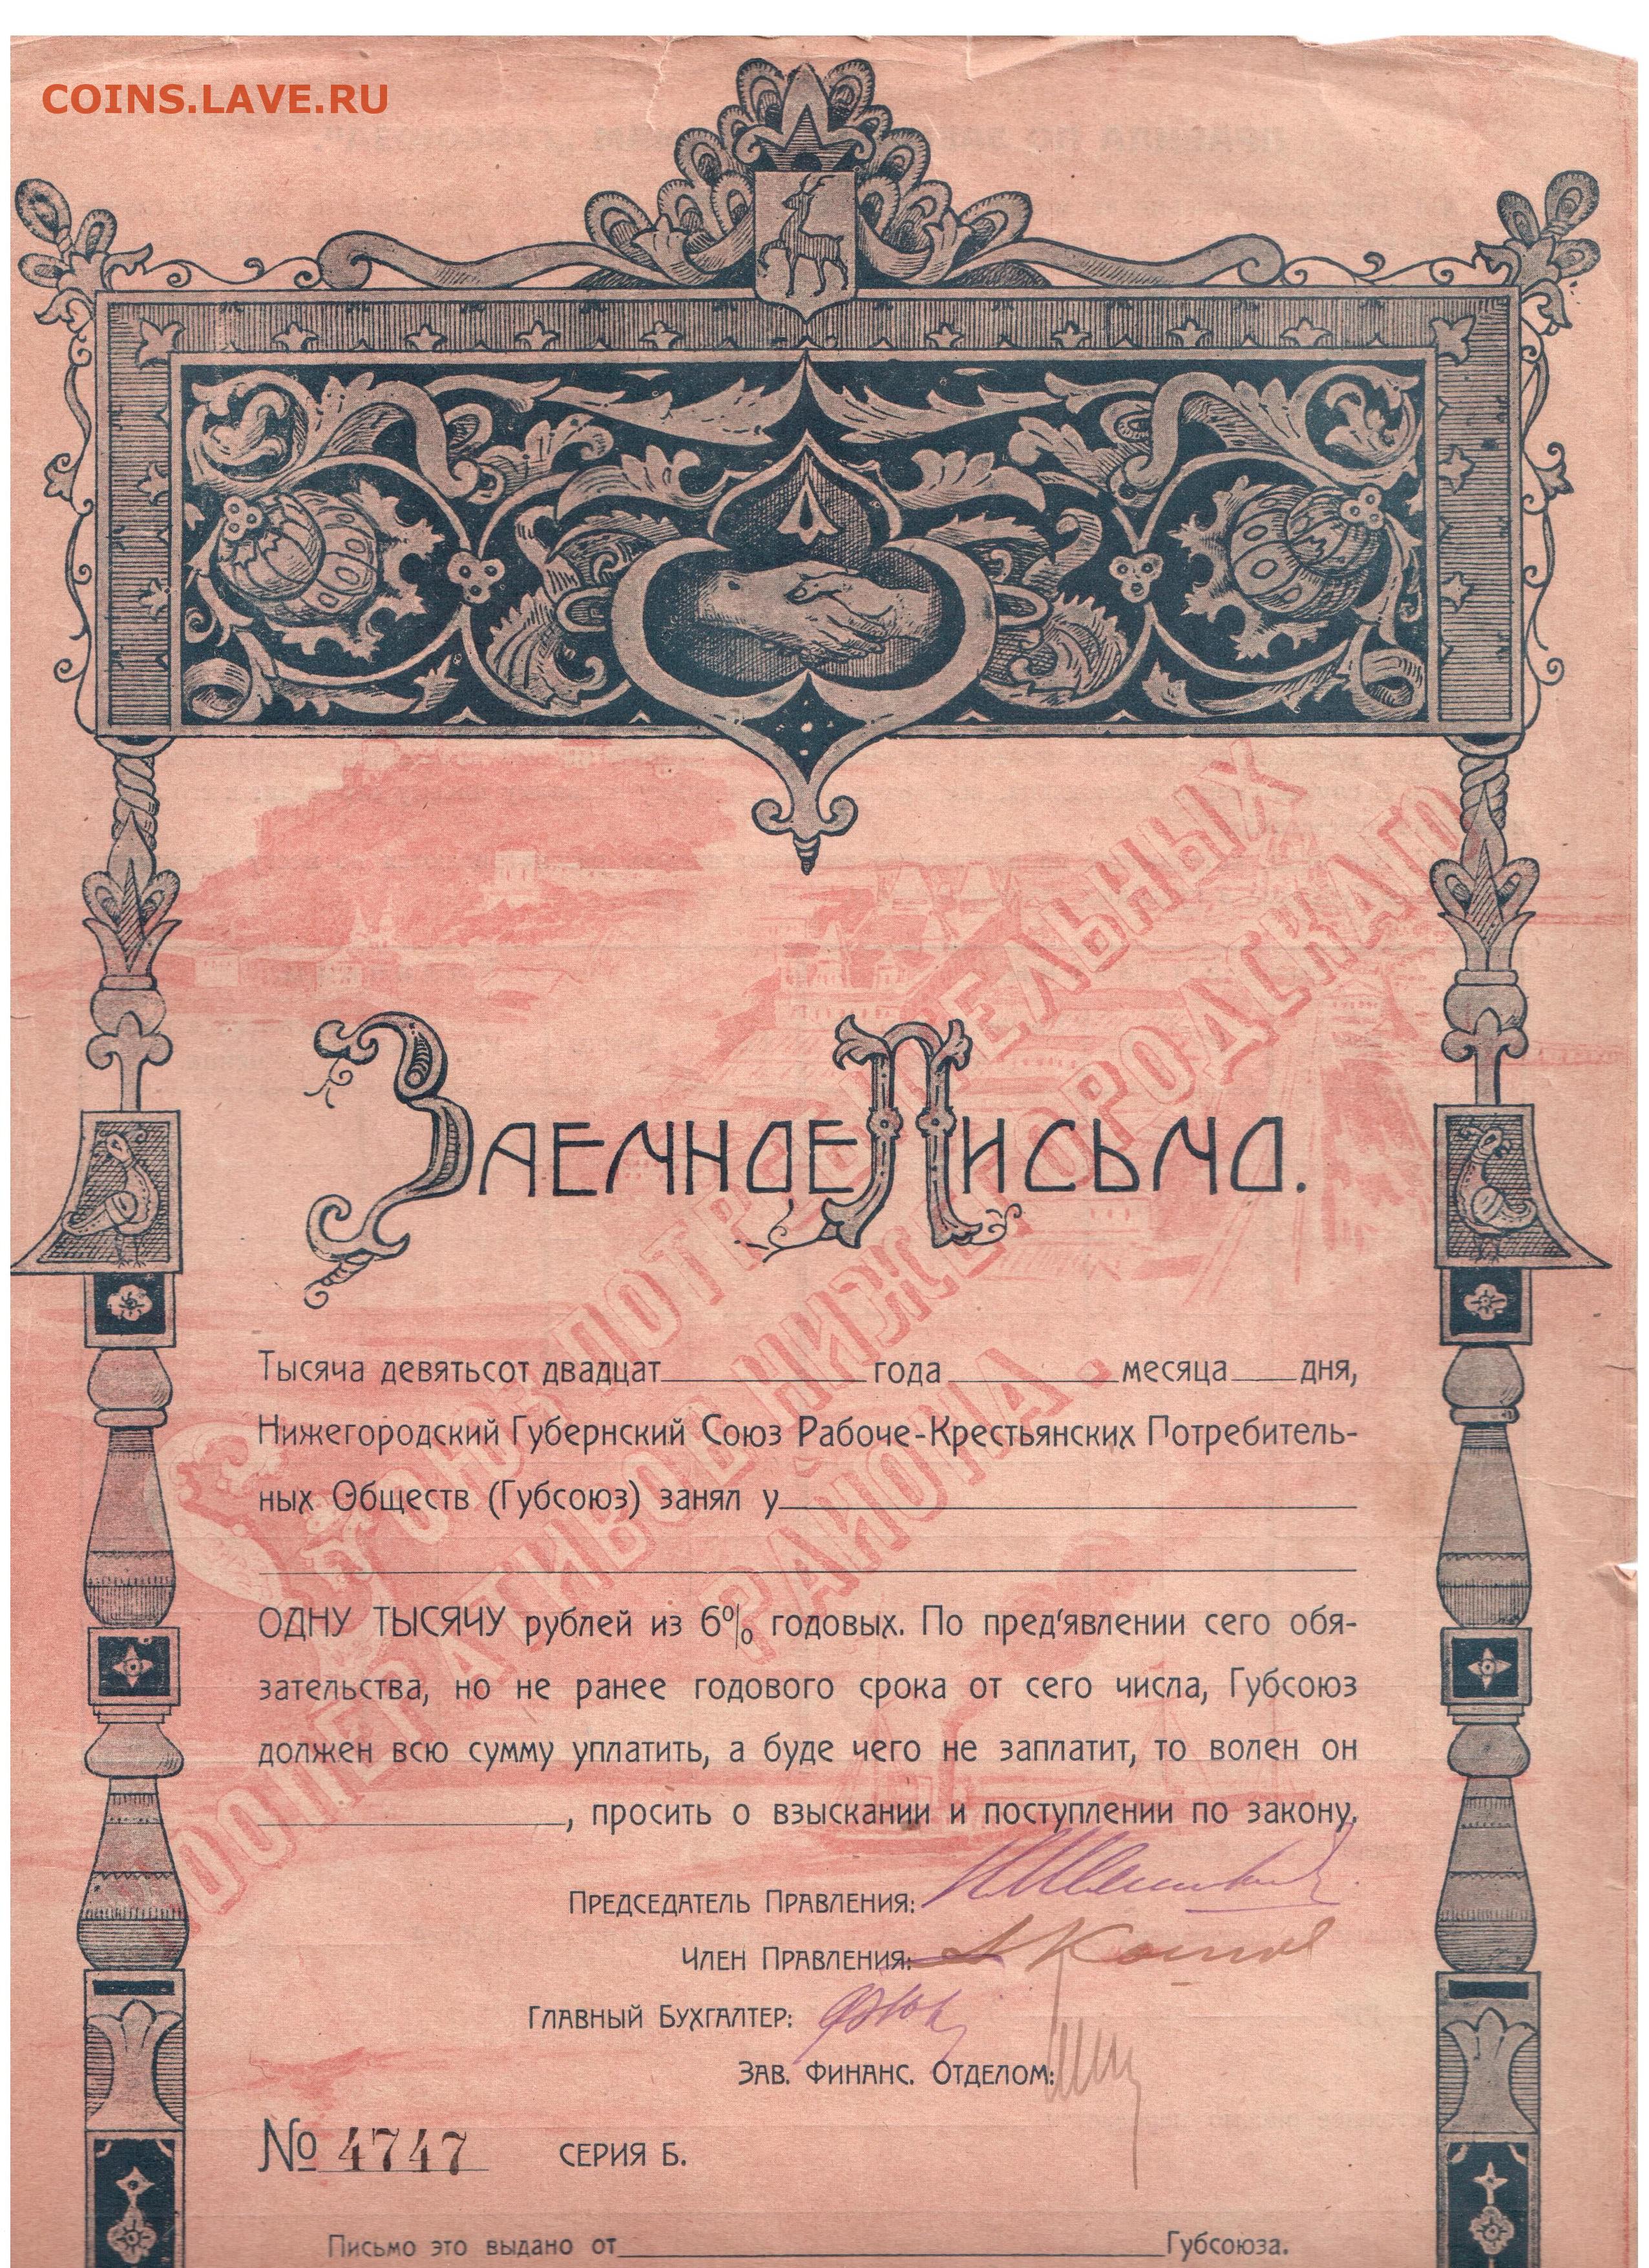 COINS.LAVE.RU
Заемное Письмо.
Тысяча девятьсот двадцат________года________месяца____дня,
Нижегородский Губернский Союз Рабоче-Крестьянских Потребитель-
ных Обществ (Губсоюз) занял у________
ОДНУ ТЫСЯЧУ рублей из 6% годовых. По пред'явлении сего обя-
зательства, но не ранее годового срока от сего числа, Губсоюз
должен всю сумму уплатить, а буде чего не заплатит, то волен он
________, просить о взыскании и поступлении по закону.
Председатель Правления:
Член Правления:
Главный Бухгалтер:
Зав. Финанс. Отделом:
№ 4747 СЕРИЯ Б.
Письмо это выдано от________Губсоюза.
СОЮЗ ПОТРЕБИТЕЛЬНЫХ
КООПЕРАТИВОВ НИЖЕГОРОДСКАГО
РАЙОНА.